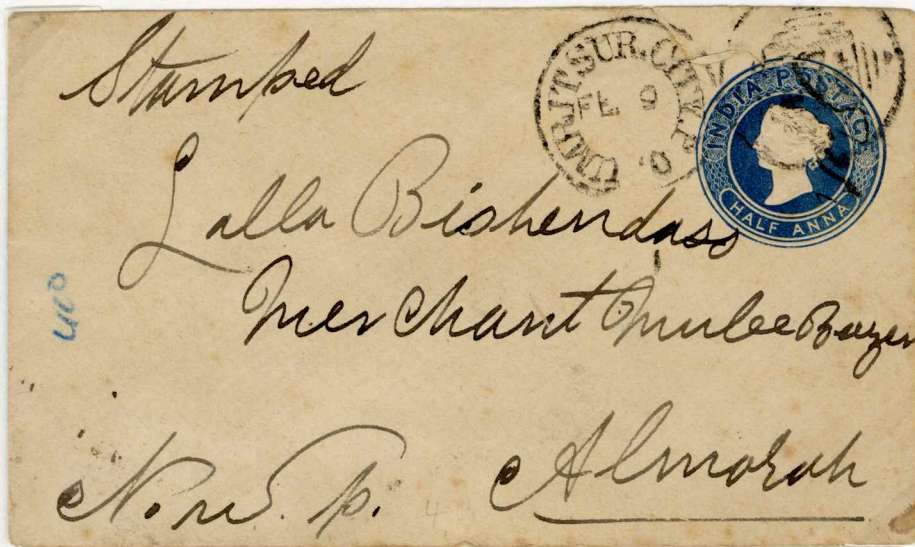 Stamped
UMRITSUR. CITY. P. O.
FE 9
INDIA POSTAGE
HALF ANNA
Lalla Bishendass
Merchant Mulee Bazer
N. W. P. Almorah